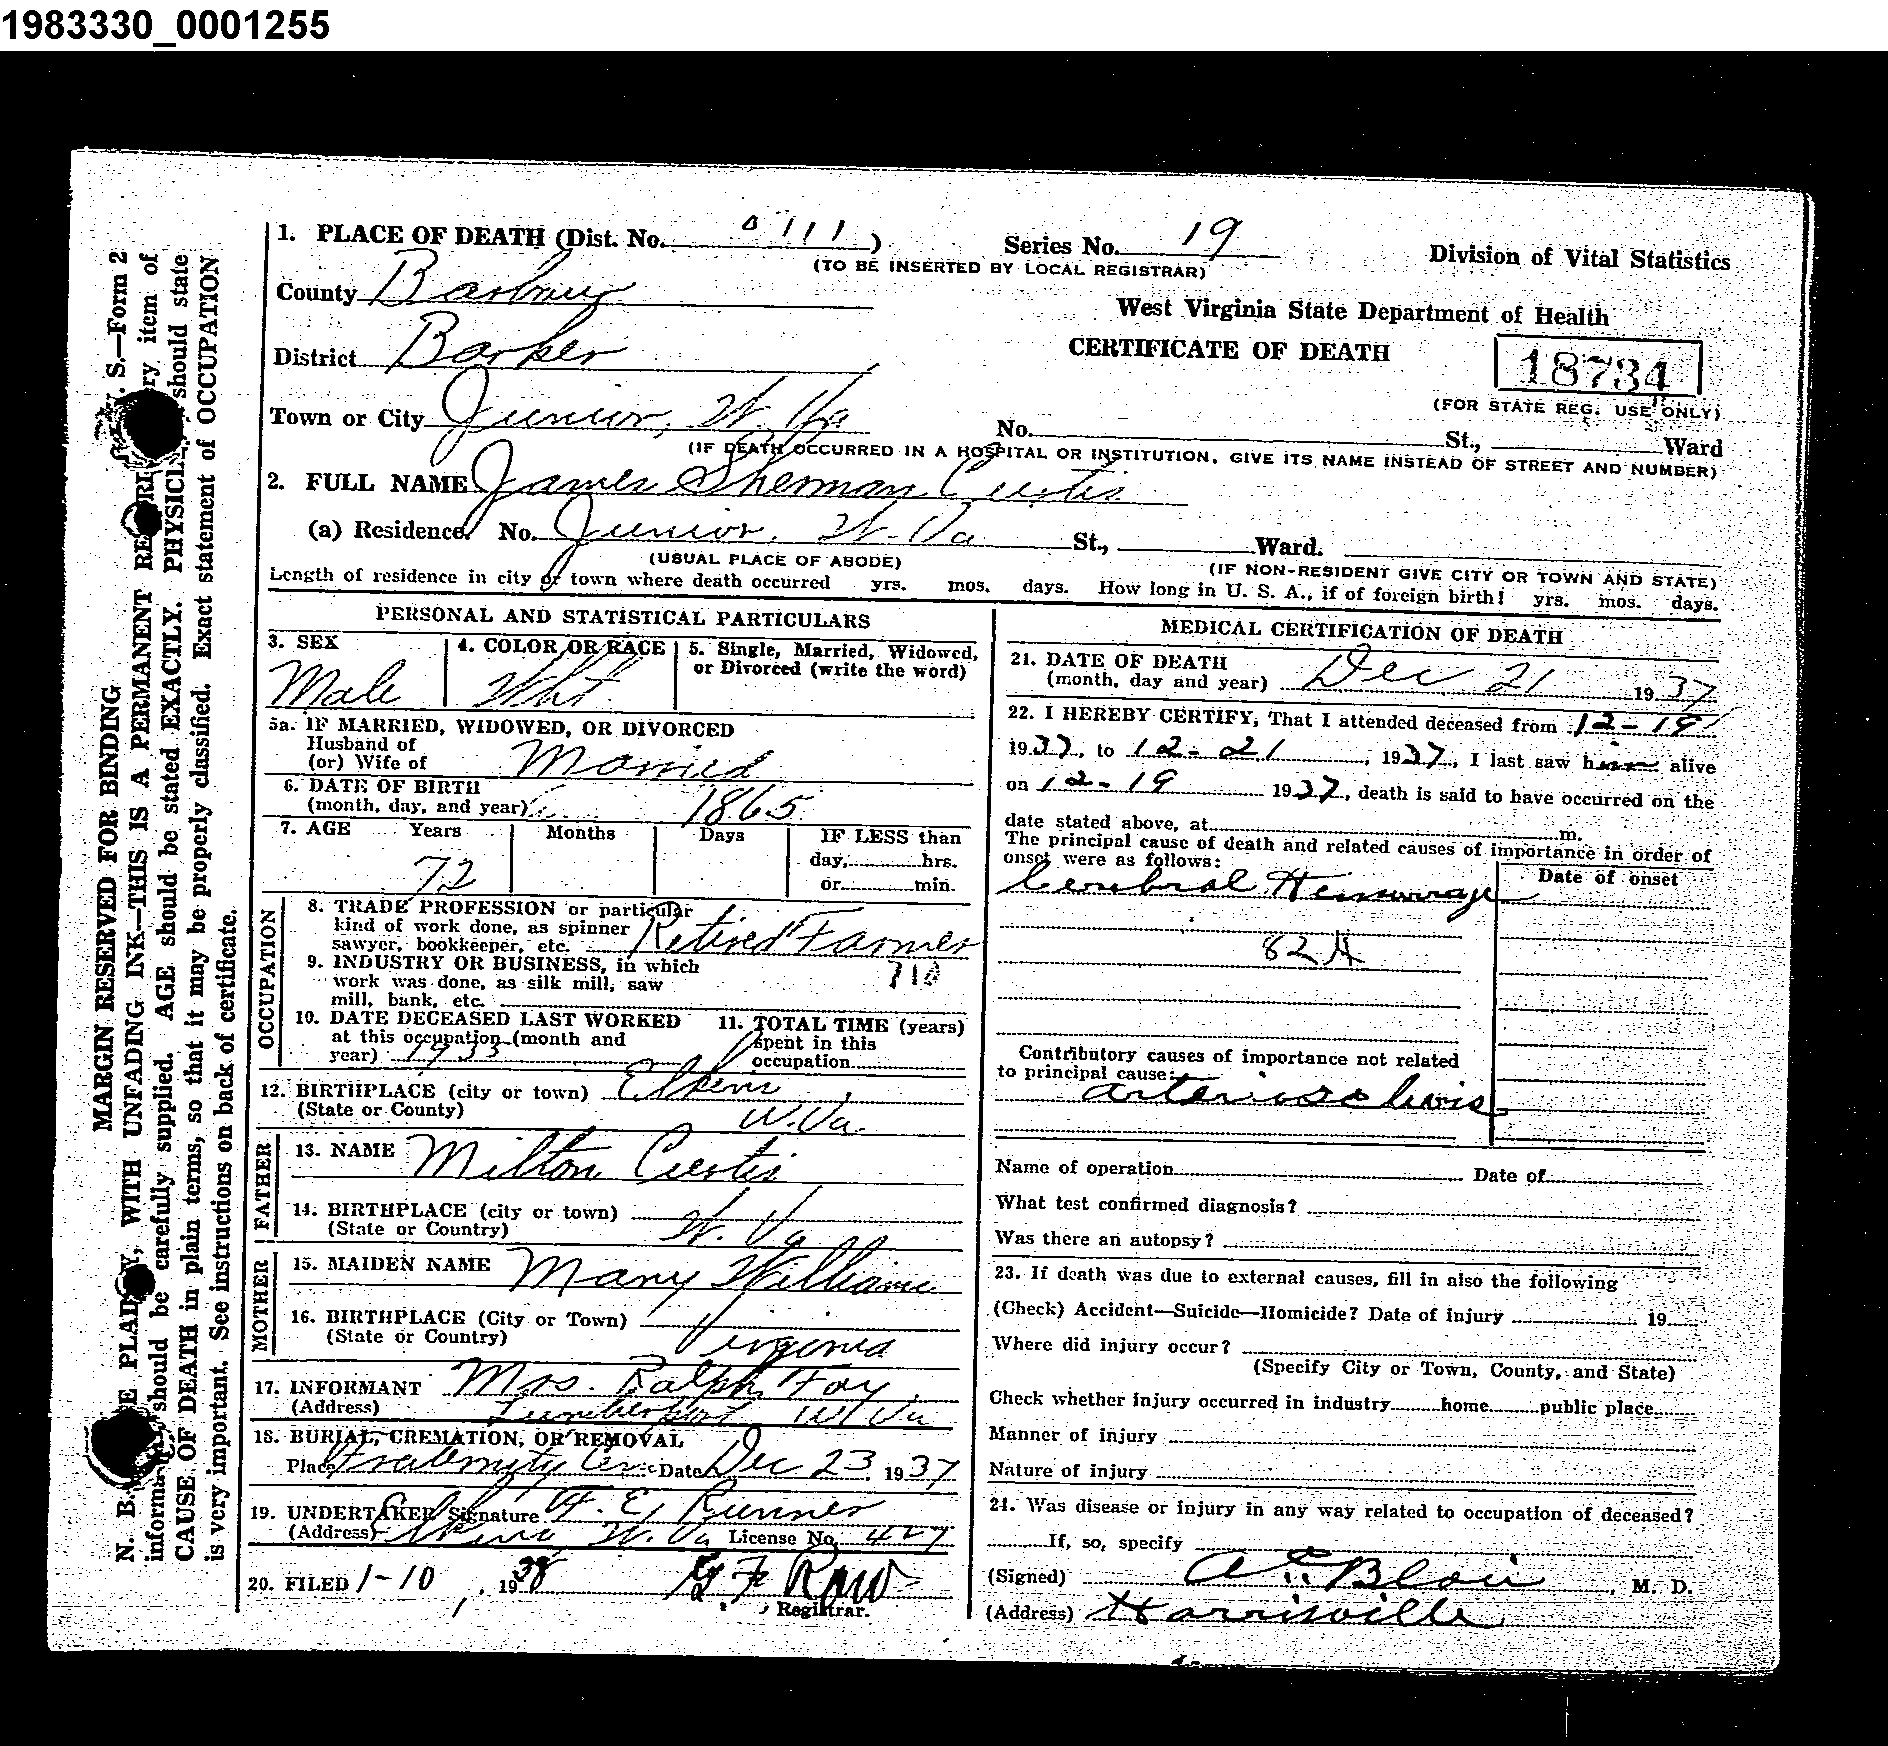 1983330_0001255
1. PLACE OF DEATH (Dist. No. 0111) Series No. 19 Division of Vital Statistics
(TO BE INSERTED BY LOCAL REGISTRAR)
County Barbour
West Virginia State Department of Health
District Barker CERTIFICATE OF DEATH 18734
(FOR STATE REG. USE ONLY)
Town or City Junior, W. Va No. St., Ward
(IF DEATH OCCURRED IN A HOSPITAL OR INSTITUTION, GIVE ITS NAME INSTEAD OF STREET AND NUMBER)
2. FULL NAME James Sherman Curtis
(a) Residence No. Junior, W. Va St., Ward.
(USUAL PLACE OF ABODE) (IF NON-RESIDENT GIVE CITY OR TOWN AND STATE)
Length of residence in city or town where death occurred yrs. mos. days. How long in U. S. A., if of foreign birth? yrs. mos. days.
PERSONAL AND STATISTICAL PARTICULARS
3. SEX 4. COLOR OR RACE 5. Single, Married, Widowed,
or Divorced (write the word)
Male Wht
5a. IF MARRIED, WIDOWED, OR DIVORCED
Husband of
(or) Wife of Married
6. DATE OF BIRTH
(month, day, and year) 1865
7. AGE Years Months Days IF LESS than
day, hrs.
72 or min.
OCCUPATION
8. TRADE PROFESSION or particular
kind of work done, as spinner
sawyer, bookkeeper, etc. Retired Farmer
9. INDUSTRY OR BUSINESS, in which
work was done, as silk mill, saw
mill, bank, etc. 710
10. DATE DECEASED LAST WORKED 11. TOTAL TIME (years)
at this occupation (month and spent in this
year) 1933 occupation
12. BIRTHPLACE (city or town) Elkins
(State or County) W. Va.
FATHER
13. NAME Milton Curtis
14. BIRTHPLACE (city or town)
(State or Country) W. Va
MOTHER
15. MAIDEN NAME Mary Williams
16. BIRTHPLACE (City or Town)
(State or Country) Virginia
17. INFORMANT Mrs. Ralph Foy
(Address) Lumberport W Va
18. BURIAL, CREMATION, OR REMOVAL
Place Fraternity Cem Date Dec 23 1937
19. UNDERTAKER Signature W. E. Runner
(Address) Elkins, W. Va License No. 427
20. FILED 1-10, 1938 G F Row
Registrar.
MEDICAL CERTIFICATION OF DEATH
21. DATE OF DEATH
(month, day and year) Dec 21 1937
22. I HEREBY CERTIFY, That I attended deceased from 12-19
1937, to 12-21, 1937, I last saw him alive
on 12-19 1937, death is said to have occurred on the
date stated above, at m.
The principal cause of death and related causes of importance in order of
onset were as follows: Date of onset
Cerebral Hemorrage
82A
Contributory causes of importance not related
to principal cause:
arteriosclerosis
Name of operation Date of
What test confirmed diagnosis?
Was there an autopsy?
23. If death was due to external causes, fill in also the following
(Check) Accident—Suicide—Homicide? Date of injury 19
Where did injury occur?
(Specify City or Town, County, and State)
Check whether injury occurred in industry home public place
Manner of injury
Nature of injury
24. Was disease or injury in any way related to occupation of deceased?
If, so, specify
(Signed) M. D.
(Address) Harrisville
S.—Form 2
MARGIN RESERVED FOR BINDING
N. B. PLAINLY, WITH UNFADING INK—THIS IS A PERMANENT item of
should be carefully supplied. AGE should be stated EXACTLY. should state
CAUSE OF DEATH in plain terms, so that it may be properly classified. Exact statement of OCCUPATION
is very important. See instructions on back of certificate.